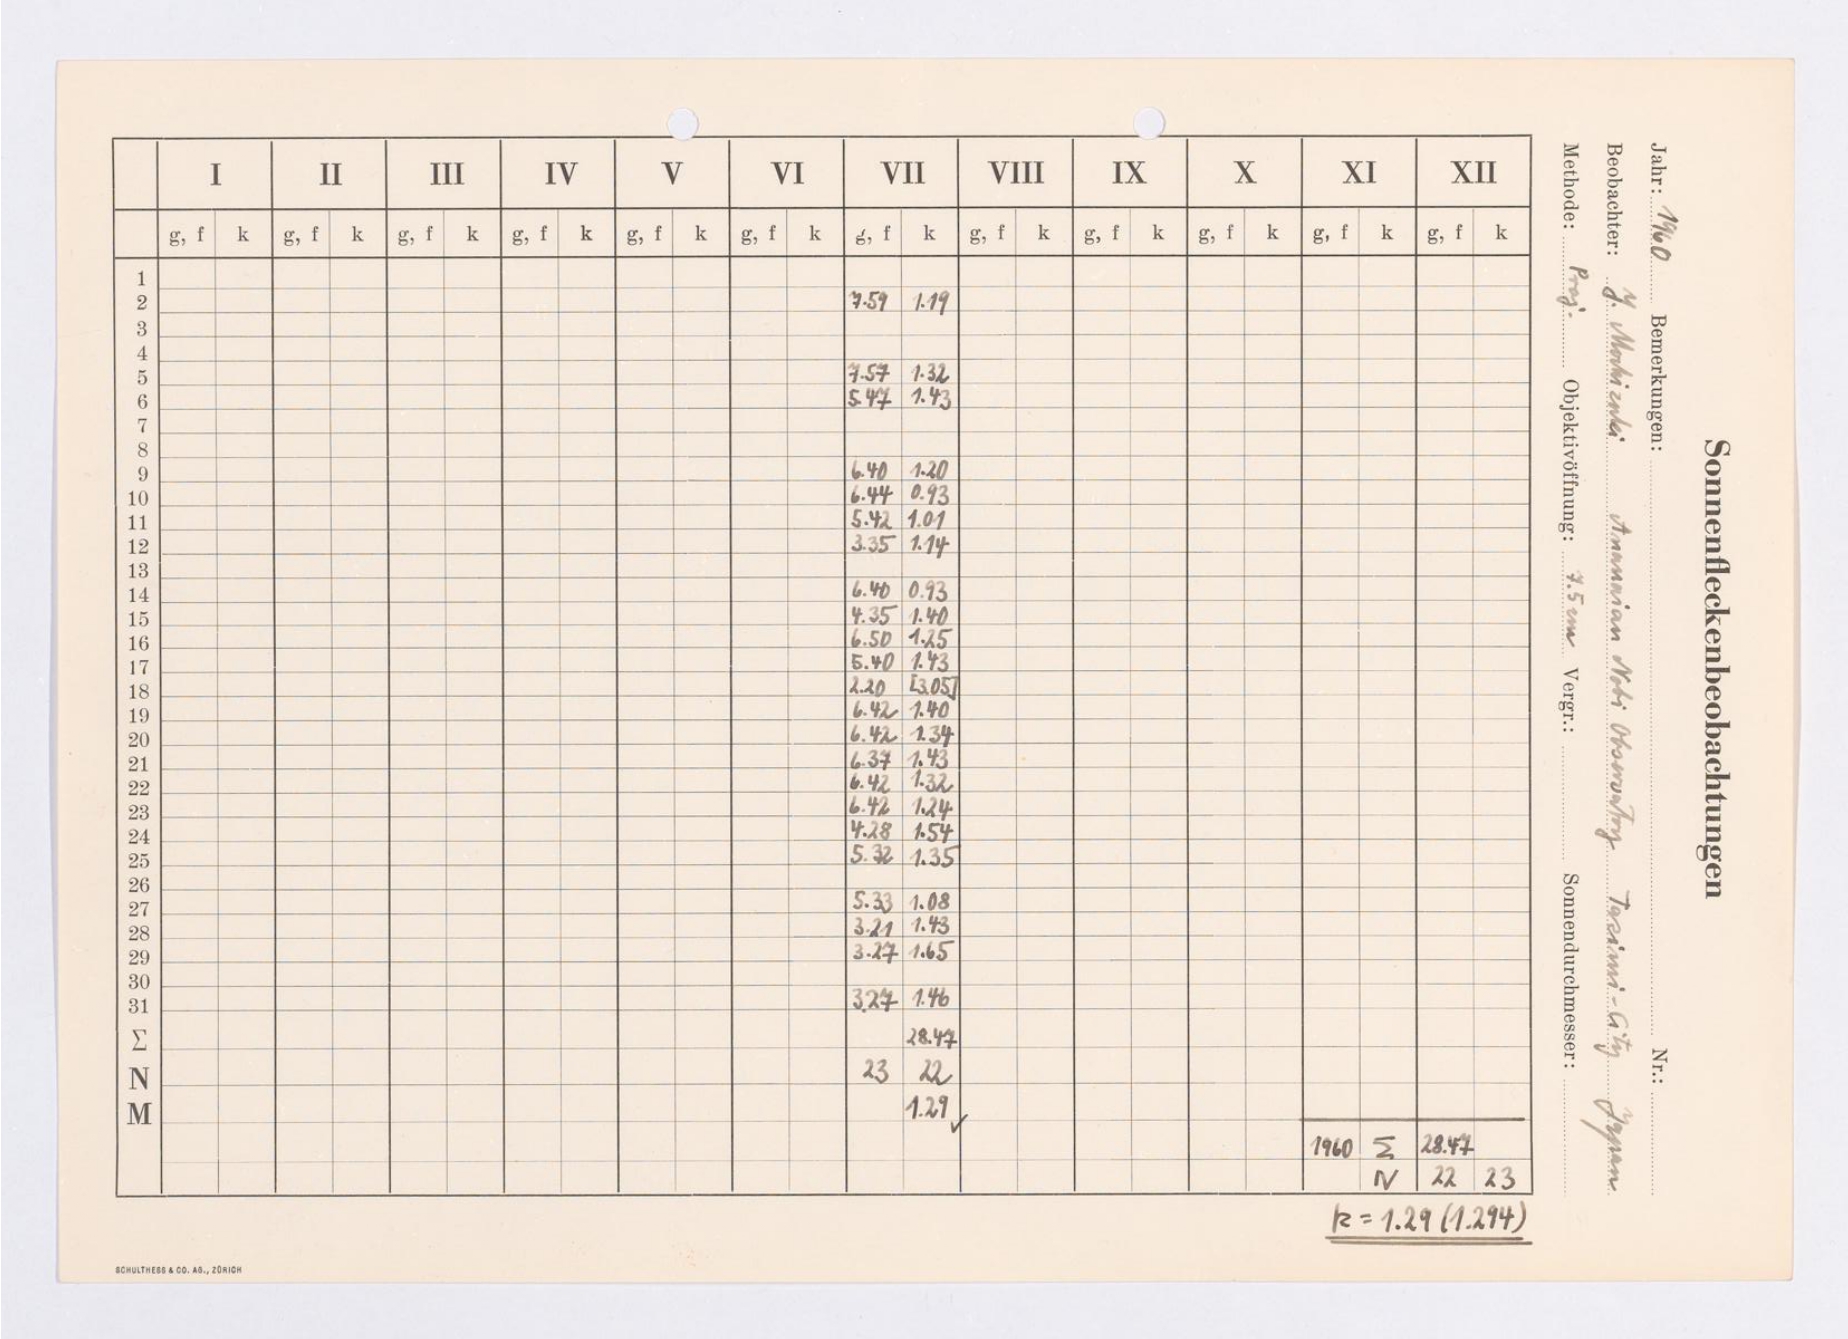 Sonnenfleckenbeobachtungen
Jahr: 1960 Bemerkungen: Nr.:
Beobachter: Observatory Japan
Methode: Proj. Objektivöffnung: 7.5 cm Vergr.: Sonnendurchmesser:
I II III IV V VI VII VIII IX X XI XII
g, f k g, f k g, f k g, f k g, f k g, f k g, f k g, f k g, f k g, f k g, f k g, f k
1
2 7.59 1.19
3
4
5 7.57 1.32
6 5.47 1.43
7
8
9 6.40 1.20
10 6.44 0.93
11 5.42 1.01
12 3.35 1.14
13
14 6.40 0.93
15 4.35 1.40
16 6.50 1.25
17 5.40 1.43
18 2.20 [3.05]
19 6.42 1.40
20 6.42 1.34
21 6.37 1.43
22 6.42 1.32
23 6.42 1.24
24 4.28 1.54
25 5.32 1.35
26
27 5.33 1.08
28 3.21 1.43
29 3.27 1.65
30
31 3.27 1.46
Σ 28.47
N 23 22
M 1.29
1960 Σ 28.47
N 22 23
k = 1.29 (1.294)
SCHULTHESS & CO. AG., ZÜRICH